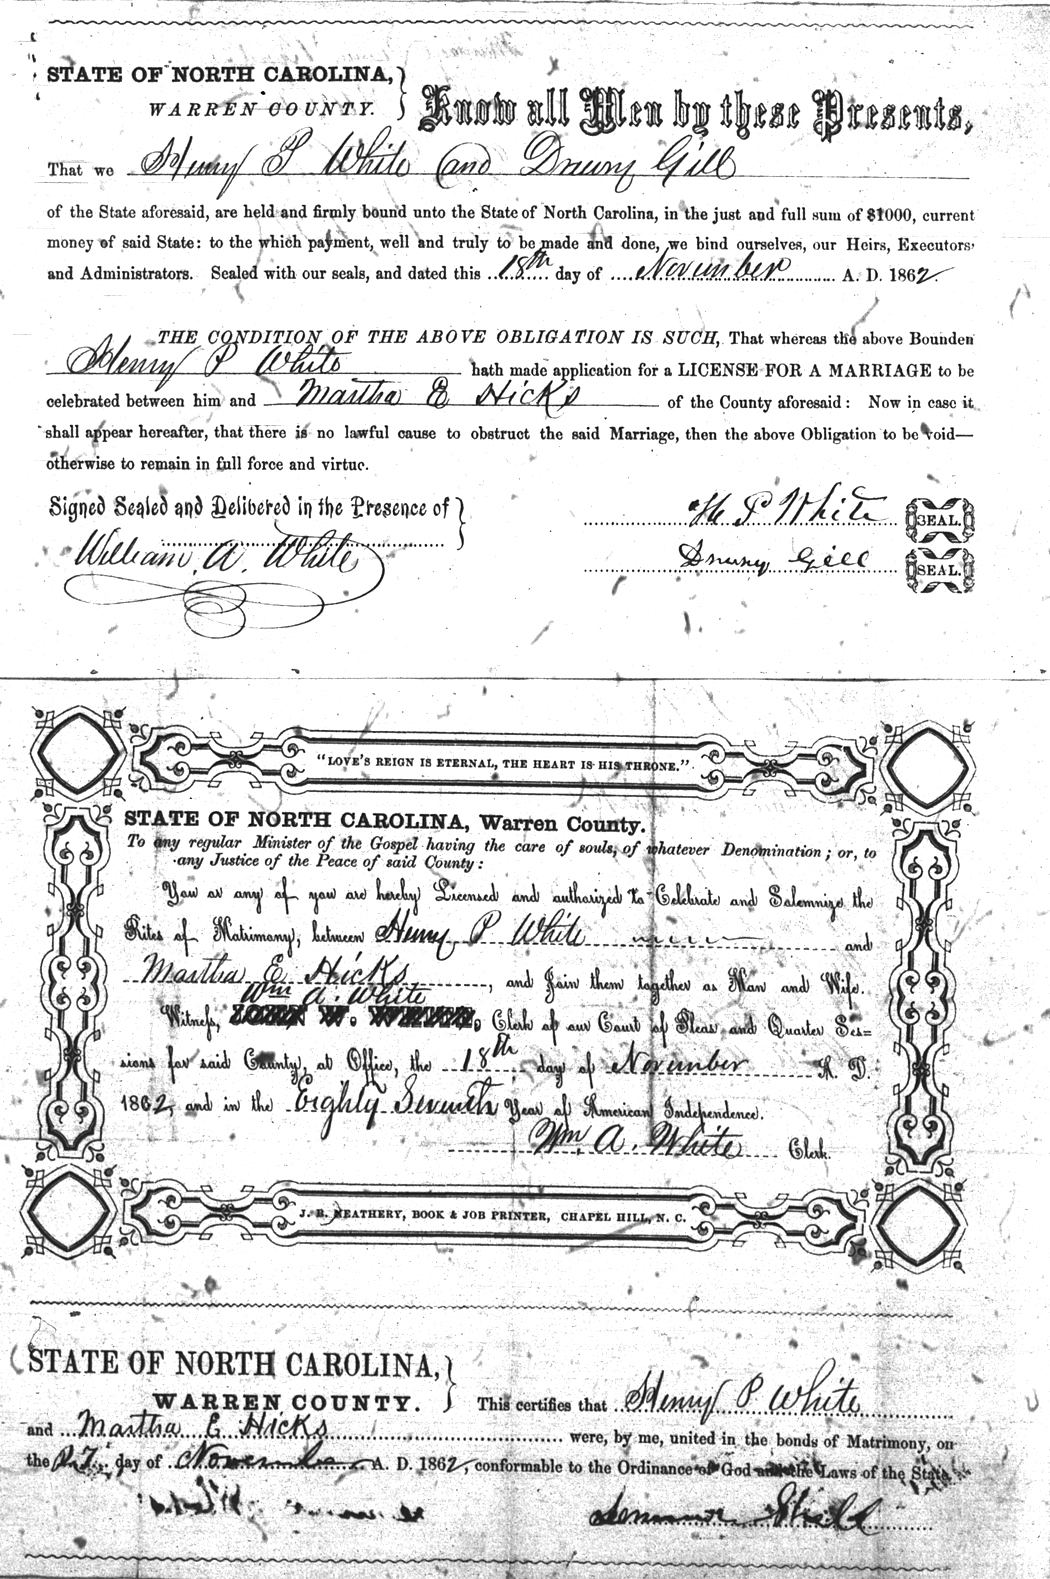 STATE OF NORTH CAROLINA,
WARREN COUNTY.
Know all Men by these Presents,
That we Henry P White and Drury Gill
of the State aforesaid, are held and firmly bound unto the State of North Carolina, in the just and full sum of $1000, current
money of said State: to the which payment, well and truly to be made and done, we bind ourselves, our Heirs, Executors
and Administrators. Sealed with our seals, and dated this 18th day of November A. D. 1862.
THE CONDITION OF THE ABOVE OBLIGATION IS SUCH, That whereas the above Bounden
Henry P White hath made application for a LICENSE FOR A MARRIAGE to be
celebrated between him and Martha E Hicks of the County aforesaid: Now in case it
shall appear hereafter, that there is no lawful cause to obstruct the said Marriage, then the above Obligation to be void—
otherwise to remain in full force and virtue.
Signed Sealed and Delivered in the Presence of
H P White SEAL.
William A. White
Drury Gill SEAL.
"LOVE'S REIGN IS ETERNAL, THE HEART IS HIS THRONE."
STATE OF NORTH CAROLINA, Warren County.
To any regular Minister of the Gospel having the care of souls, of whatever Denomination; or, to
any Justice of the Peace of said County:
You or any of you are hereby Licensed and authorized to Celebrate and Solemnize the
Rites of Matrimony, between Henry P White and
Martha E Hicks, and Join them together as Man and Wife.
Wm A. White
Witness, Clerk of our Court of Pleas and Quarter Ses=
sions for said County, at Office, the 18th day of November A. D.
1862, and in the Eighty Seventh Year of American Independence.
Wm. A. White Clerk.
J. B. NEATHERY, BOOK & JOB PRINTER, CHAPEL HILL, N. C.
STATE OF NORTH CAROLINA,
WARREN COUNTY.
This certifies that Henry P. White
and Martha E Hicks were, by me, united in the bonds of Matrimony, on
the day of November A. D. 1862, conformable to the Ordinance of God and the Laws of the State.